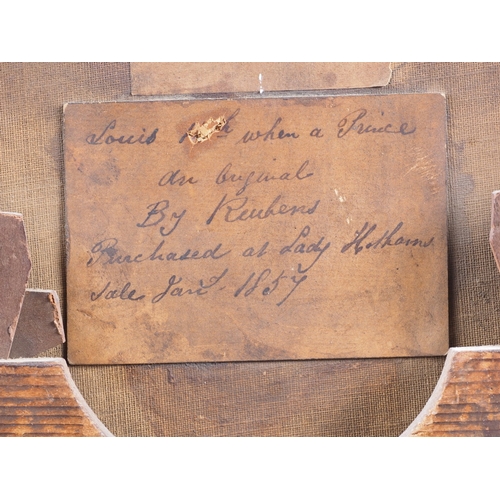 Louis 1 th when a Prince
An Original
By Reubens
Purchased at Lady Hothams
Sale Jany. 1857